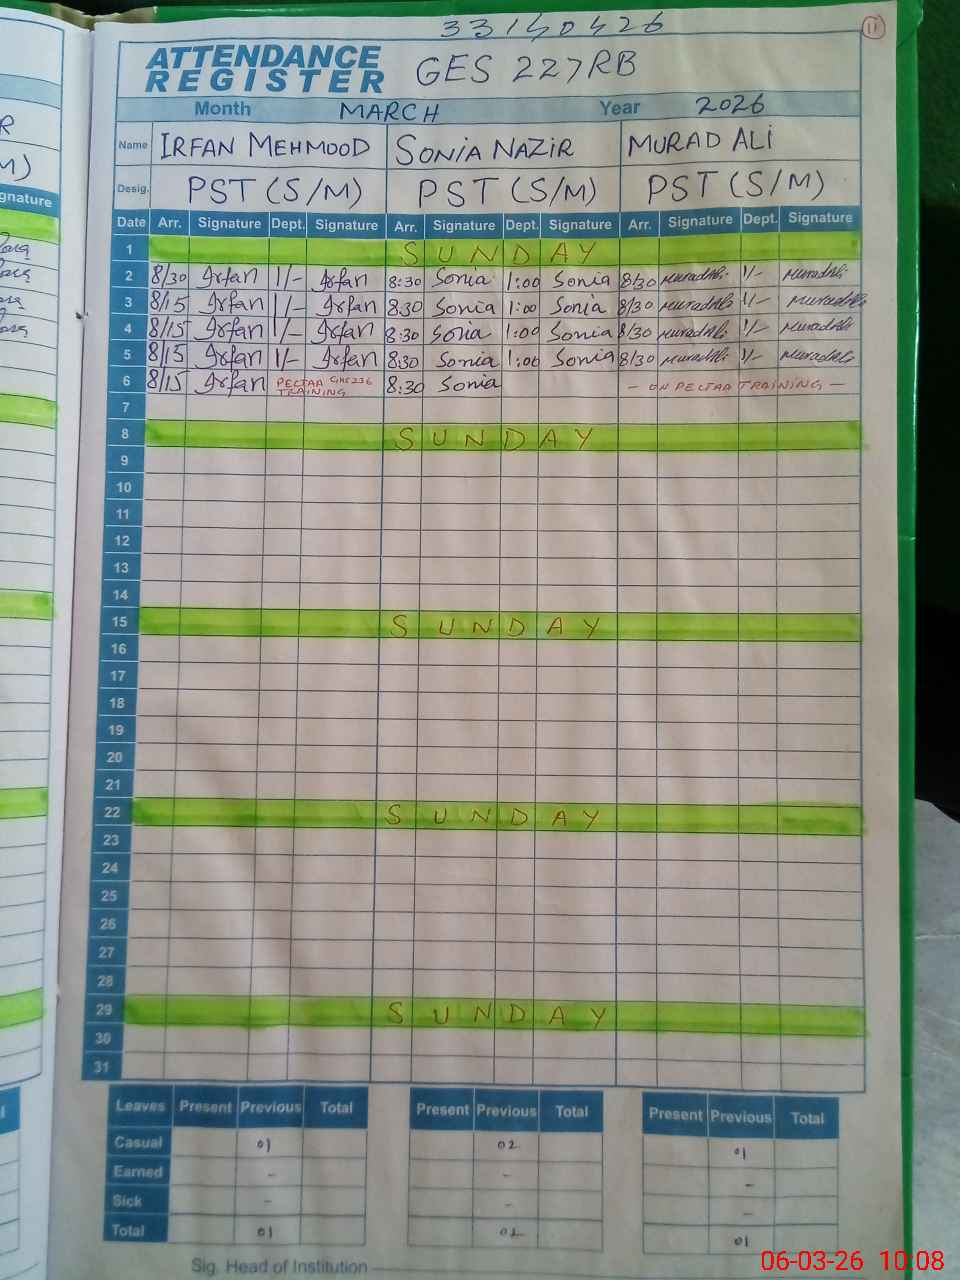 33140426
11
ATTENDANCE
REGISTER
GES 227RB
Month MARCH Year 2026
Name IRFAN MEHMOOD SONIA NAZIR MURAD ALI
Desig. PST (S/M) PST (S/M) PST (S/M)
Date Arr. Signature Dept. Signature Arr. Signature Dept. Signature Arr. Signature Dept. Signature
1 SUNDAY
2 8/30 Irfan 1/- Irfan 8:30 Sonia 1:00 Sonia 8/30 Muradali 1/- Muradali
3 8/15 Irfan 1/- Irfan 8:30 Sonia 1:00 Sonia 8/30 Muradali 1/- Muradali
4 8/15 Irfan 1/- Irfan 8:30 Sonia 1:00 Sonia 8/30 Muradali 1/- Muradali
5 8/15 Irfan 1/- Irfan 8:30 Sonia 1:00 Sonia 8/30 Muradali 1/- Muradali
6 8/15 Irfan PECTAA GHS 236 TRAINING 8:30 Sonia - ON PECTAA TRAINING -
7
8 SUNDAY
9
10
11
12
13
14
15 SUNDAY
16
17
18
19
20
21
22 SUNDAY
23
24
25
26
27
28
29 SUNDAY
30
31
Leaves Present Previous Total Present Previous Total Present Previous Total
Casual 01 02 01
Earned - - -
Sick - - -
Total 01 02 01
Sig. Head of Institution
06-03-26 10:08
gnature